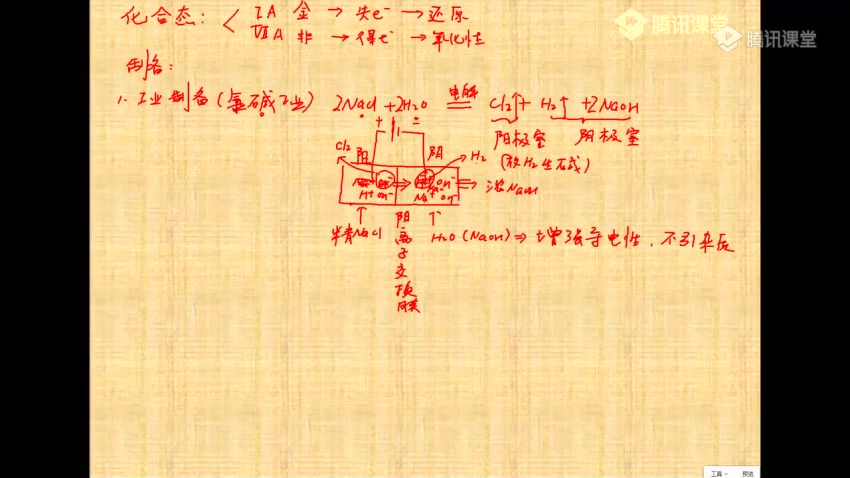 化合态： ⅠA 金 → 失e⁻ → 还原
ⅦA 非 → 得e⁻ → 氧化性
腾讯课堂 腾讯课堂
制备：
1. 工业制备(氯碱工业) 2NaCl + 2H₂O 电解 Cl₂↑ + H₂↑ + 2NaOH
阳极室 阴极室
+ =
Cl₂ 阳 阴 → H₂ (被H₂生成)
H⁺ OH⁻ Na⁺ OH⁻ ⇒ 浓NaOH
NaCl 阳离子交换膜 H₂O (NaOH) ⇒ 增强导电性，不引杂质
工具 预览